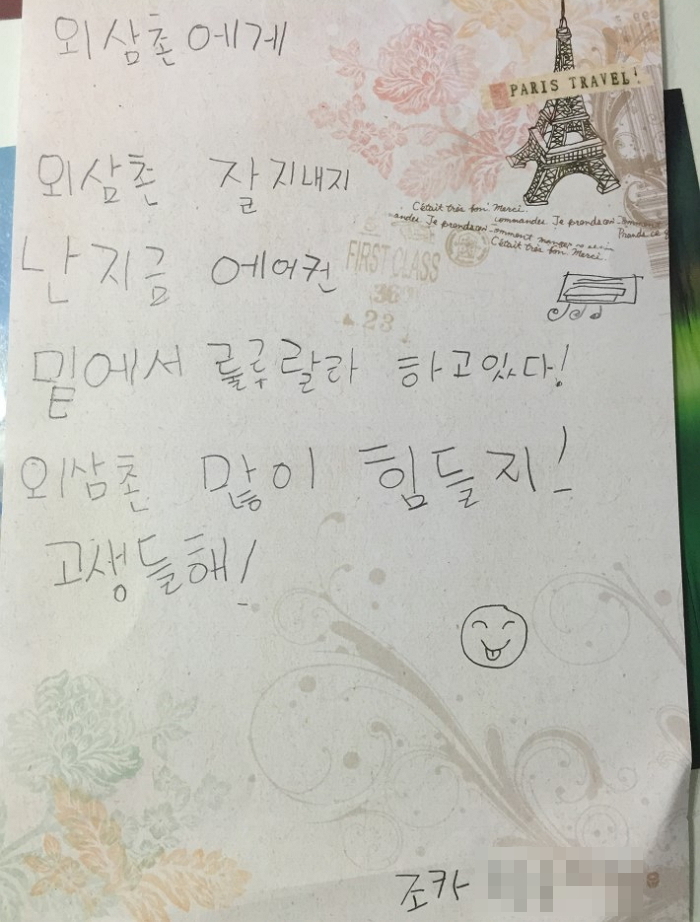 외삼촌에게
PARIS TRAVEL!
외삼촌 잘지내지
C'était très bon! Merci.
commandes Je prends
난지금 에어컨
FIRST CLASS
36
23
C'était très bon! Merci.
밑에서 룰루랄라 하고있다!
외삼촌 많이 힘들지!
고생들해!
조카